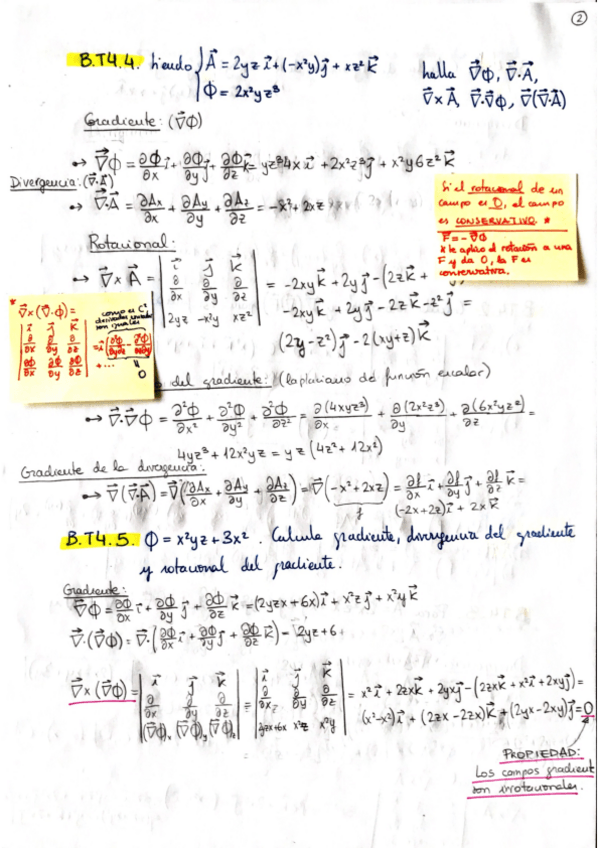 2
B.T4.4. Siendo { A⃗ = 2yz i⃗ + (-x²y) j⃗ + xz² k⃗
Φ = 2x²yz³
halla ∇⃗Φ, ∇⃗·A⃗,
∇⃗×A⃗, ∇⃗·∇⃗Φ, ∇⃗(∇⃗·A⃗)
Gradiente: (∇⃗Φ)
↦ ∇⃗Φ = ∂Φ/∂x i⃗ + ∂Φ/∂y j⃗ + ∂Φ/∂z k⃗ = yz³4x i⃗ + 2x²z³ j⃗ + x²y6z² k⃗
Divergencia: (∇⃗·A⃗)
↦ ∇⃗·A⃗ = ∂Ax/∂x + ∂Ay/∂y + ∂Az/∂z = -x² + 2xz
Si el rotacional de un
campo es 0, el campo
es CONSERVATIVO. *
F⃗ = -∇⃗Φ
* le aplico el rotación a una
F y da 0, la F es
conservativa.
Rotacional:
↦ ∇⃗×A⃗ = | i⃗ j⃗ k⃗ |
| ∂/∂x ∂/∂y ∂/∂z |
| 2yz -x²y xz² |
= -2xy k⃗ + 2y j⃗ - (2z k⃗ +
-2xy k⃗ + 2y j⃗ - 2z k⃗ - z² j⃗ =
(2y - z²) j⃗ - 2(xy+z) k⃗
* ∇⃗×(∇⃗·Φ) =
| i⃗ j⃗ k⃗ |
| ∂/∂x ∂/∂y ∂/∂z |
| ∂Φ/∂x ∂Φ/∂y ∂Φ/∂z |
como es C²
derivadas
son iguales
+ ...
0
del gradiente: (laplaciano de función escalar)
↦ ∇⃗·∇⃗Φ = ∂²Φ/∂x² + ∂²Φ/∂y² + ∂²Φ/∂z² = ∂(4xyz³)/∂x + ∂(2x²z³)/∂y + ∂(6x²yz²)/∂z =
4yz³ + 12x²yz = yz(4z² + 12x²)
Gradiente de la divergencia:
↦ ∇⃗(∇⃗·A⃗) = ∇⃗(∂Ax/∂x + ∂Ay/∂y + ∂Az/∂z) = ∇⃗(-x² + 2xz) = ∂f/∂x i⃗ + ∂f/∂y j⃗ + ∂f/∂z k⃗ =
f
(-2x+2z) i⃗ + 2x k⃗
B.T4.5. Φ = x²yz + 3x². Calcula gradiente, divergencia del gradiente
y rotacional del gradiente.
Gradiente:
∇⃗Φ = ∂Φ/∂x i⃗ + ∂Φ/∂y j⃗ + ∂Φ/∂z k⃗ = (2yzx + 6x) i⃗ + x²z j⃗ + x²y k⃗
∇⃗·(∇⃗Φ) = ∇⃗·(∂Φ/∂x i⃗ + ∂Φ/∂y j⃗ + ∂Φ/∂z k⃗) = 2yz + 6
∇⃗×(∇⃗Φ) = | i⃗ j⃗ k⃗ | = | i⃗ j⃗ k⃗ |
| ∂/∂x ∂/∂y ∂/∂z | | ∂/∂x ∂/∂y ∂/∂z |
| (∇⃗Φ)x (∇⃗Φ)y (∇⃗Φ)z | | 2yzx+6x x²z x²y |
= x² i⃗ + 2zx k⃗ + 2yx j⃗ - (2zx k⃗ + x² i⃗ + 2xy j⃗) =
(x²-x²) i⃗ + (2zx - 2zx) k⃗ + (2yx - 2xy) j⃗ = 0
PROPIEDAD:
Los campos gradient
son irrotacionales.